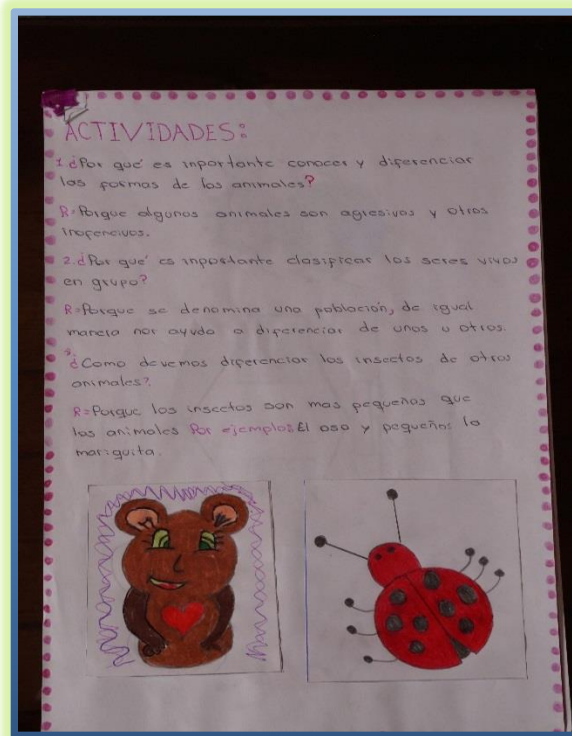 ACTIVIDADES:
1 ¿Por qué es inportante conocer y diferenciar
las formas de los animales?
R= Porque algunos animales son agresivos y otros
inofencivos.
2. ¿Por qué es inportante clasificar los seres vivos
en grupo?
R= Porque se denomina una población, de igual
manera nor ayuda a diferenciar de unos u otros.
3. ¿Como devemos diferenciar los insectos de otros
animales?
R= Porque los insectos son mas pequeños que
los animales Por ejemplo: El oso y pequeños la
mariquita.